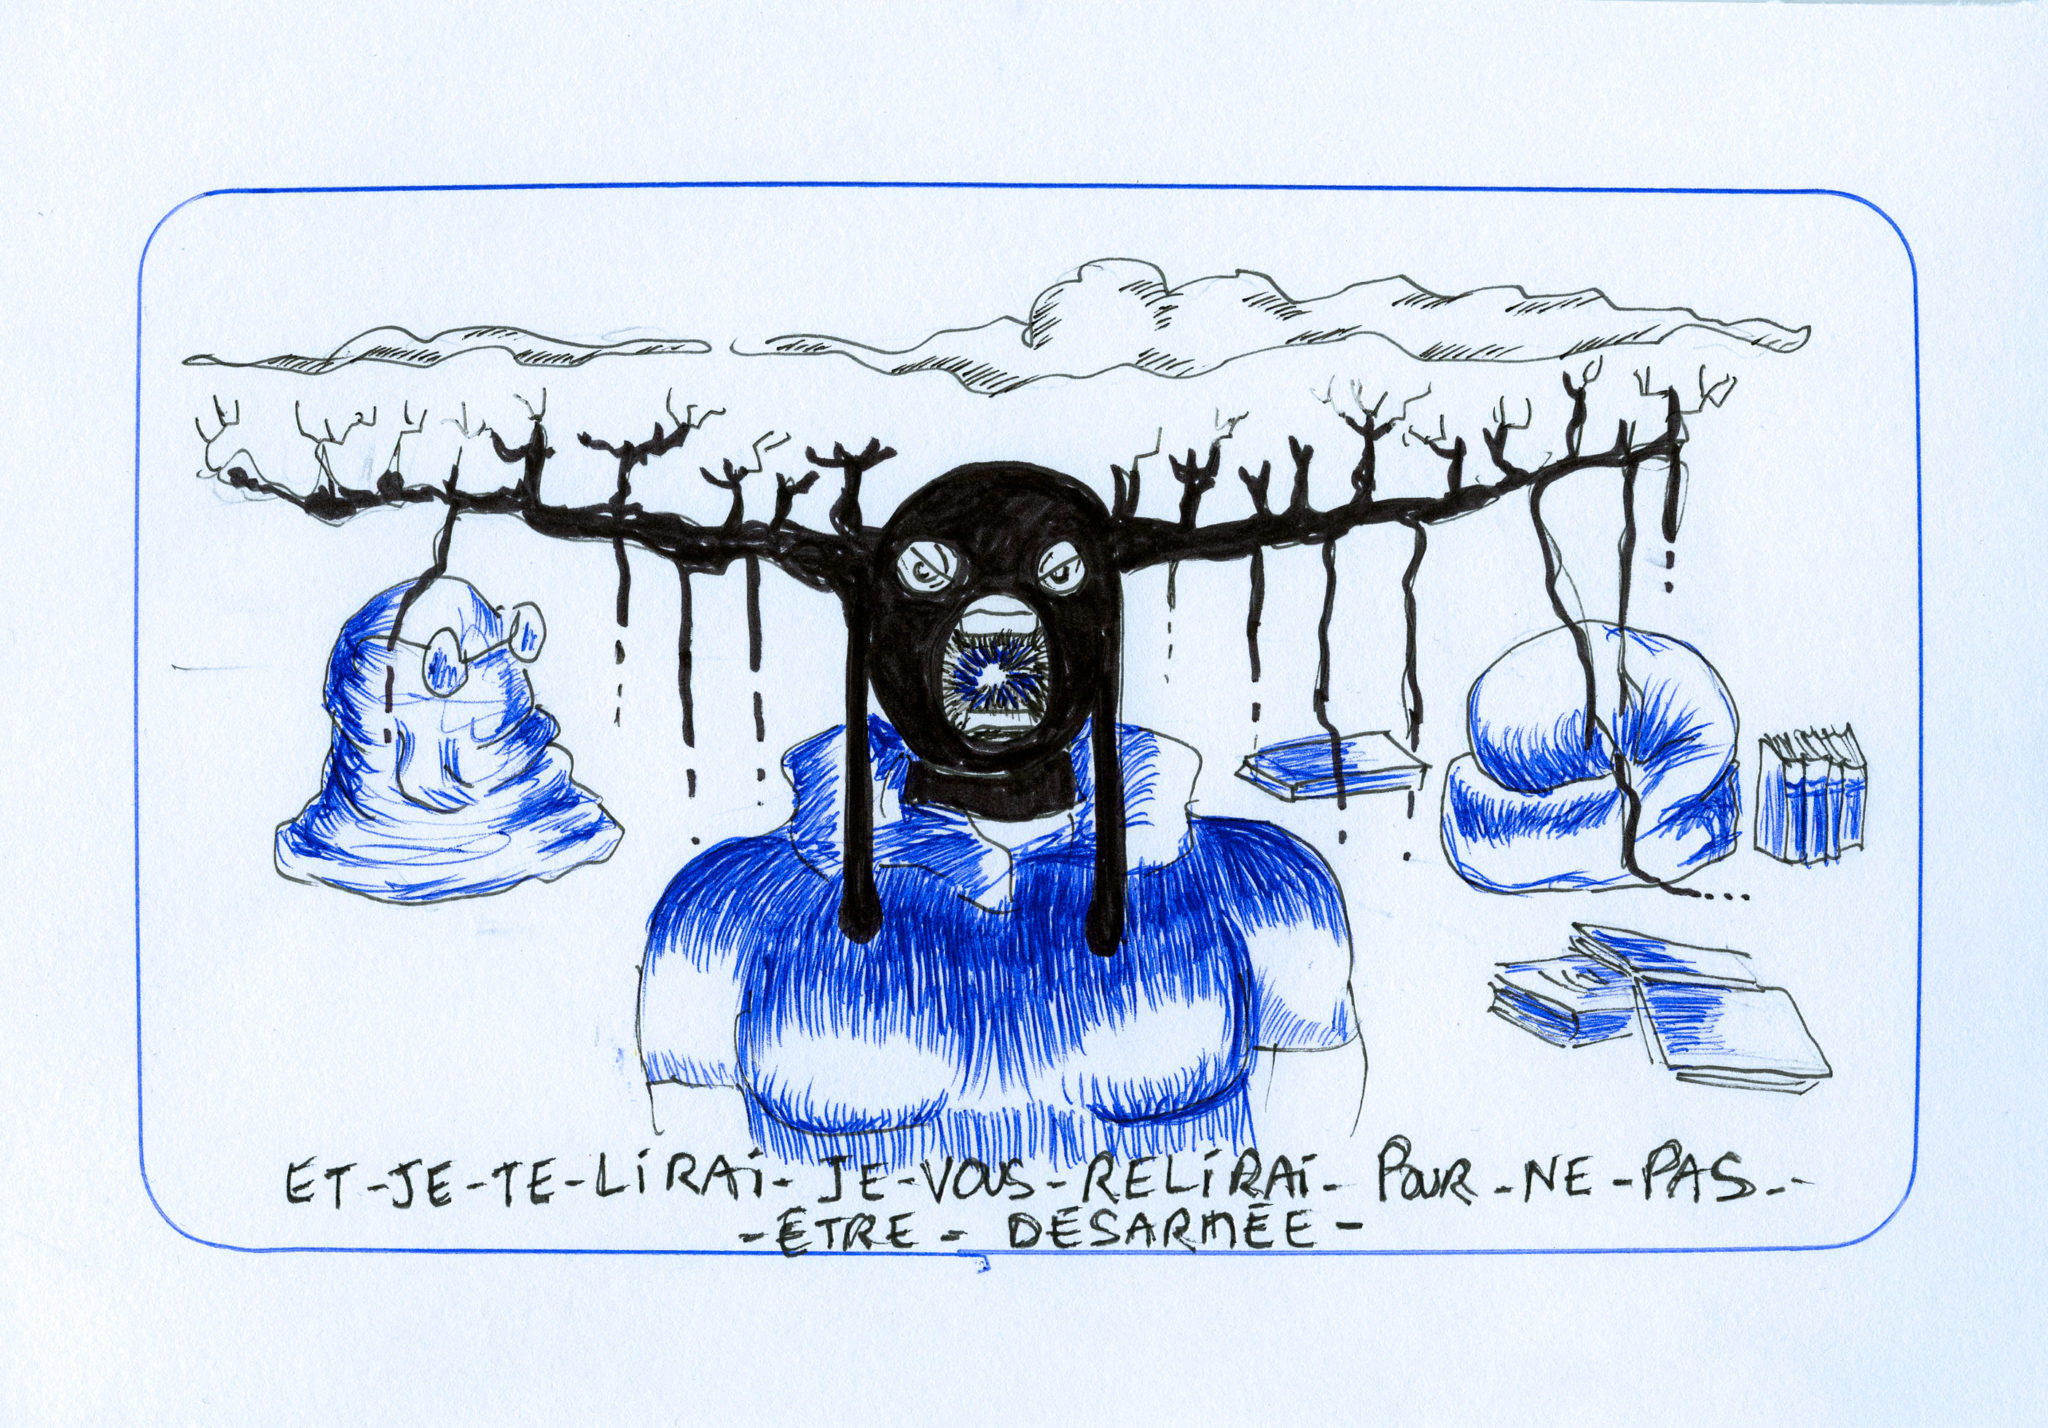 ET-JE-TE-LiRAi-JE-VOUS-RELiRAi-POUR-NE-PAS--
-ÊTRE-DÉSARMÉE-